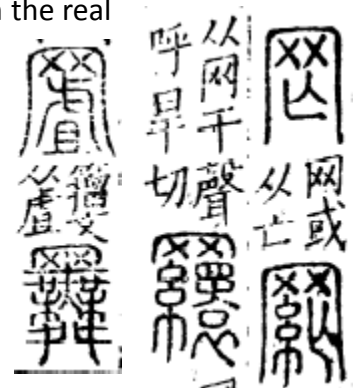 the real
罔
网或
从亡
網
从网干聲
呼旱切
籀文
从虘